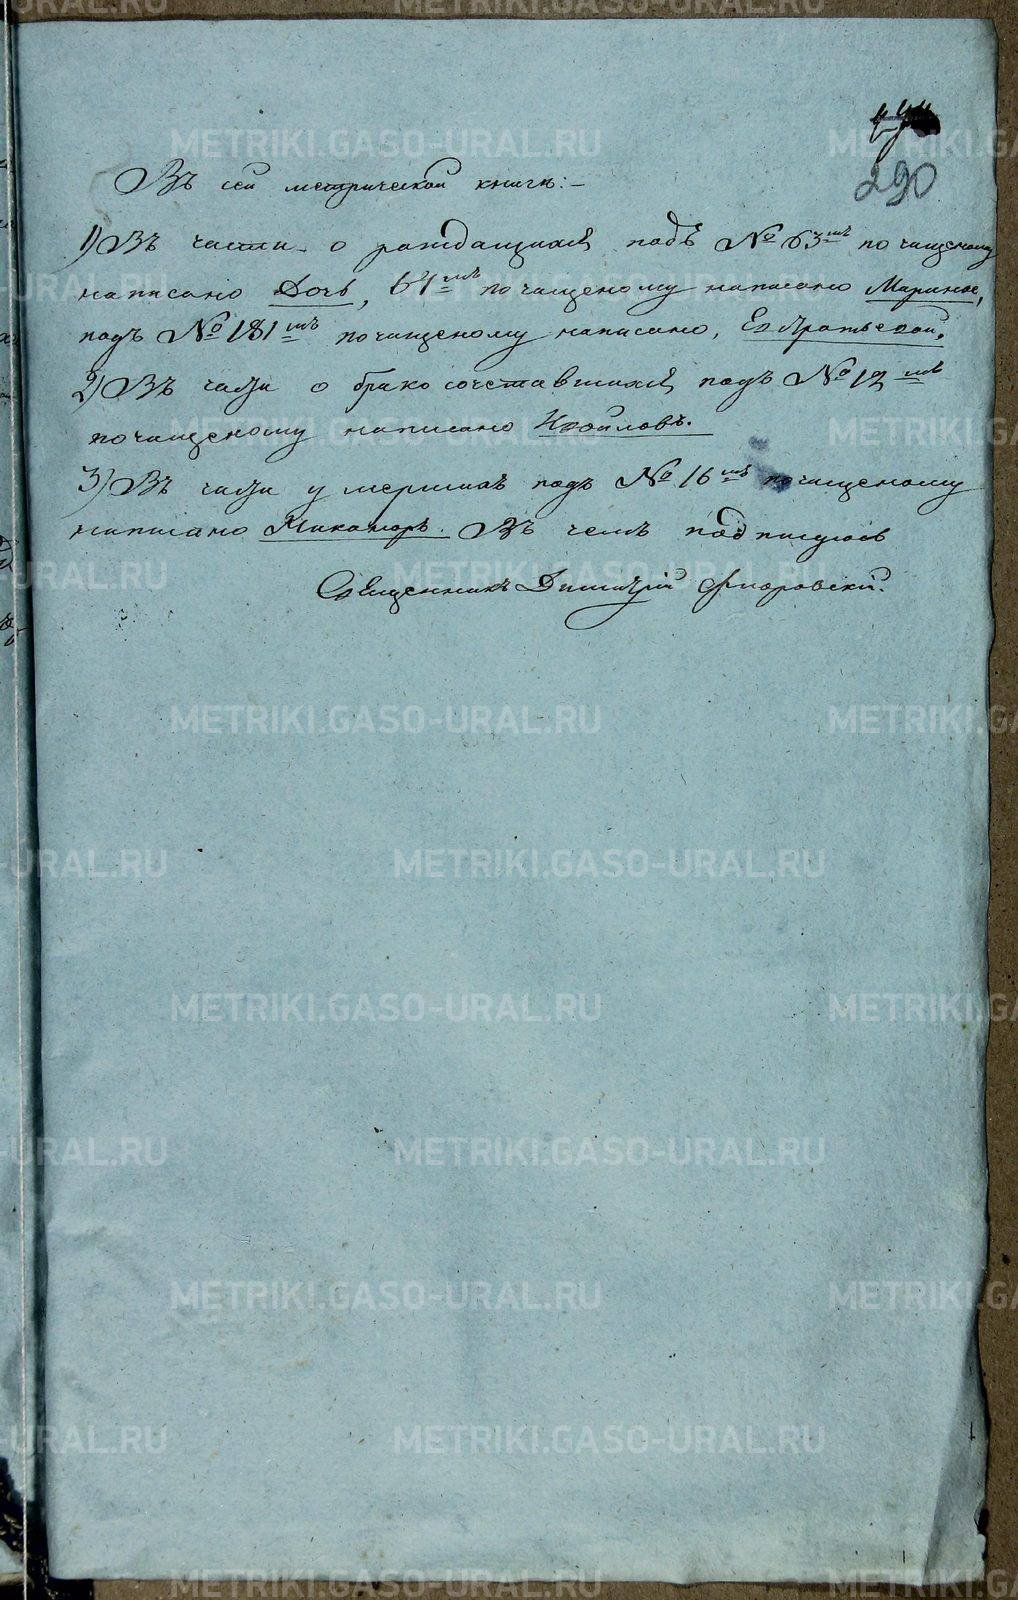 290
Въ сей метрической книгѣ:-
1) Въ части о рождающихся подъ № 63мъ по чищеному
написано Дочь, 64мъ по чищеному написано Марина,
подъ № 181мъ по чищеному написано,
2) Въ части о бракосочетавшихся подъ № 12мъ
по чищеному написано
3) Въ части умершихъ подъ № 16мъ по чищеному
написано Никаноръ. Въ чемъ подписуюсь
Священникъ Димитрій
METRIKI.GASO-URAL.RU